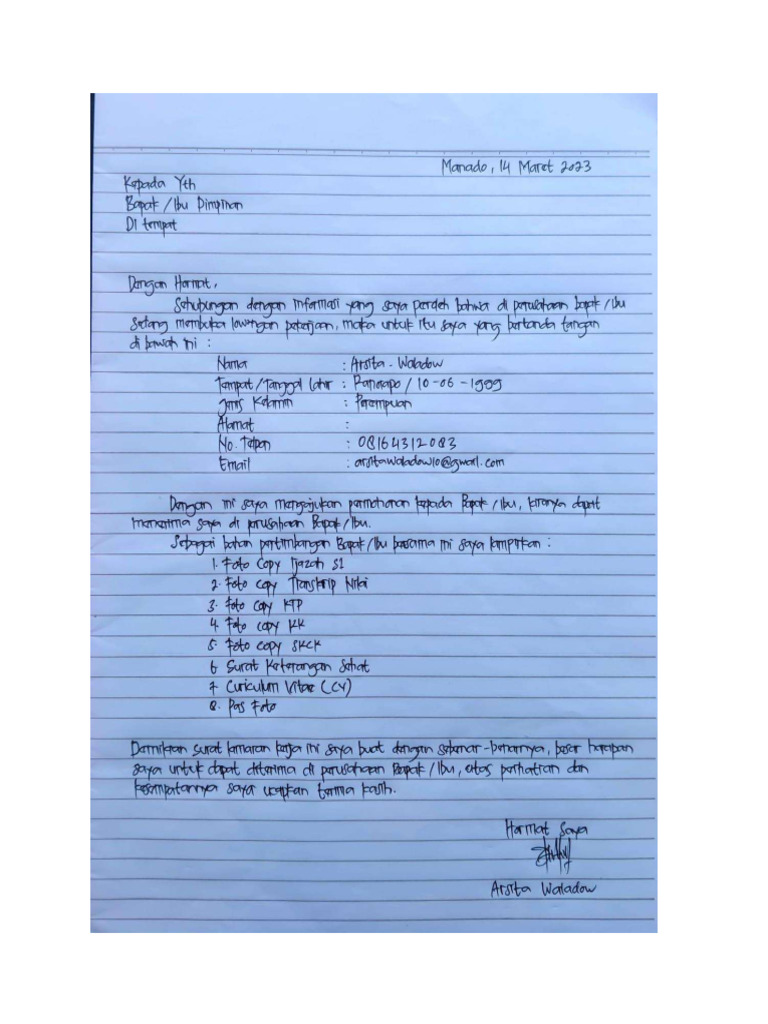 Manado, 14 Maret 2023
Kepada Yth
Bapak / Ibu Pimpinan
Di tempat
Dengan Hormat,
Sehubungan dengan informasi yang saya peroleh bahwa di perusahaan Bapak / Ibu
Sedang membuka lowongan pekerjaan, maka untuk itu saya yang bertanda tangan
di bawah ini :
Nama : Arsita Waladow
Tempat / Tanggal Lahir : / 10-06-1999
Jenis Kelamin : Perempuan
Alamat :
No. Telpon : 08164312083
Email : arsitawaladow10@gmail.com
Dengan ini saya mengajukan permohonan kepada Bapak / Ibu, kiranya dapat
menerima saya di perusahaan Bapak / Ibu.
Sebagai bahan pertimbangan Bapak / Ibu bersama ini saya lampirkan :
1. Foto Copy Ijazah S1
2. Foto copy Transkrip Nilai
3. Foto copy KTP
4. Foto copy KK
5. Foto copy SKCK
6 Surat Keterangan Sehat
7 Curiculum Vitae (CV)
8. Pas Foto
Demikian surat lamaran kerja ini saya buat dengan sebenar-benarnya, besar harapan
saya untuk dapat diterima di perusahaan Bapak / Ibu, atas perhatian dan
kesempatannya saya ucapkan terima kasih.
Hormat Saya
Arsita Waladow